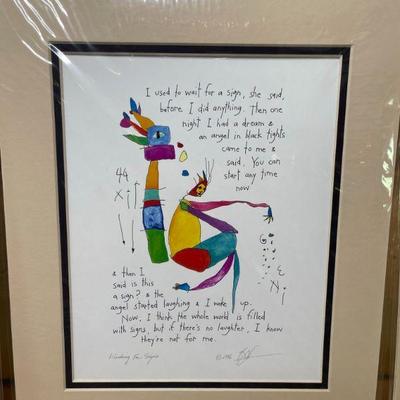 I used to wait for a sign, she said,
before I did anything. Then one
night I had a dream &
an angel in black tights
came to me &
said, You can
start any time
now
& then I
said is this
a sign? & the
angel started laughing & I woke up.
Now, I think the whole world is filled
with signs, but if there's no laughter, I know
they're not for me.
Waiting For Signs
©1996